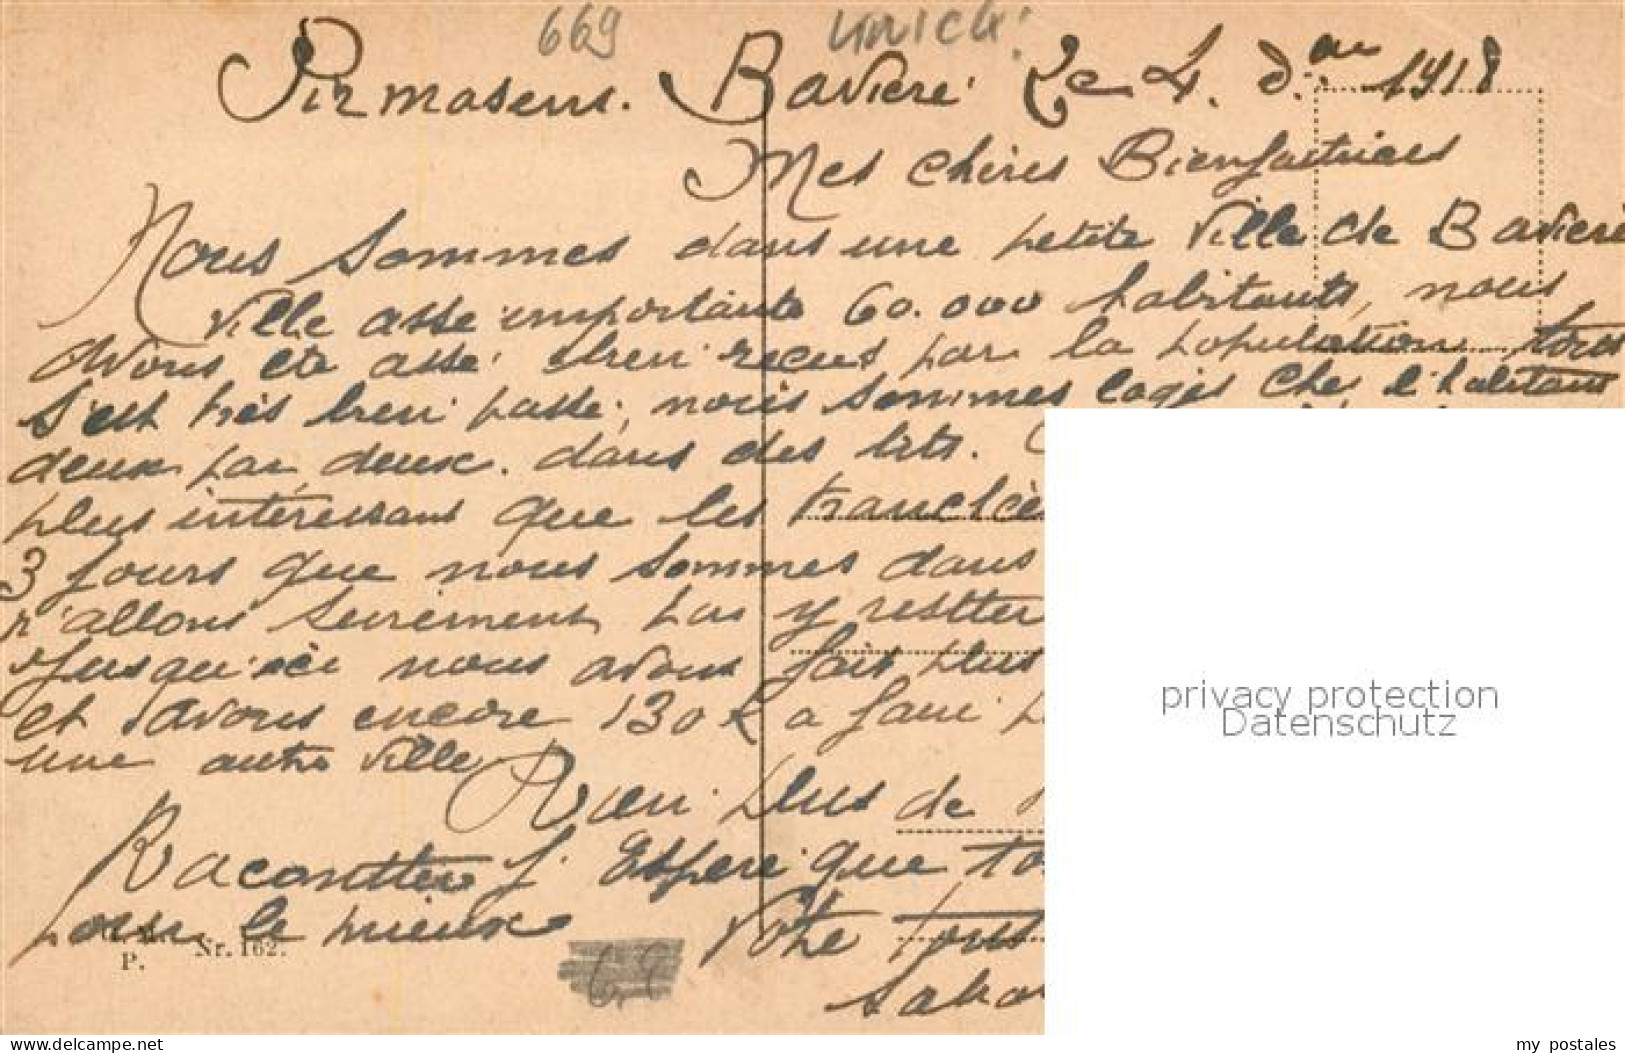 669 unich
Pirmasens. Bavière Le 4. 1918
Mes chères Bienfaitrices
Nous sommes dans une petite ville de Bavière
ville assé importante 60.000 habitants, nous
avons été assé bien recus par la population tous
s'est très bien passé, nous sommes logés che l'habitant
deux par deux. dans des lits.
plus intéressant que les tranchée
3 jours que nous sommes dans
n'allons surement pas y restter
jusqu'ici nous avons fait plus
et avons encore 130 K a faire
une autre ville
Rien plus de
Raconter j'éspère que to
pour le mieux Votre tous
Nr. 162.
P.
privacy protection
Datenschutz
www.delcampe.net
my_postales